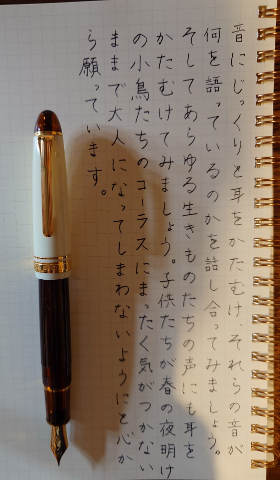 音にじっくりと耳をかたむけ、それらの音が
何を語っているのかを話し合ってみましょう。
そしてあらゆる生きものたちの声にも耳を
かたむけてみましょう。子供たちが春の夜明け
の小鳥たちのコーラスにまったく気がつかない
ままで大人になってしまわないようにと心か
ら願っています。